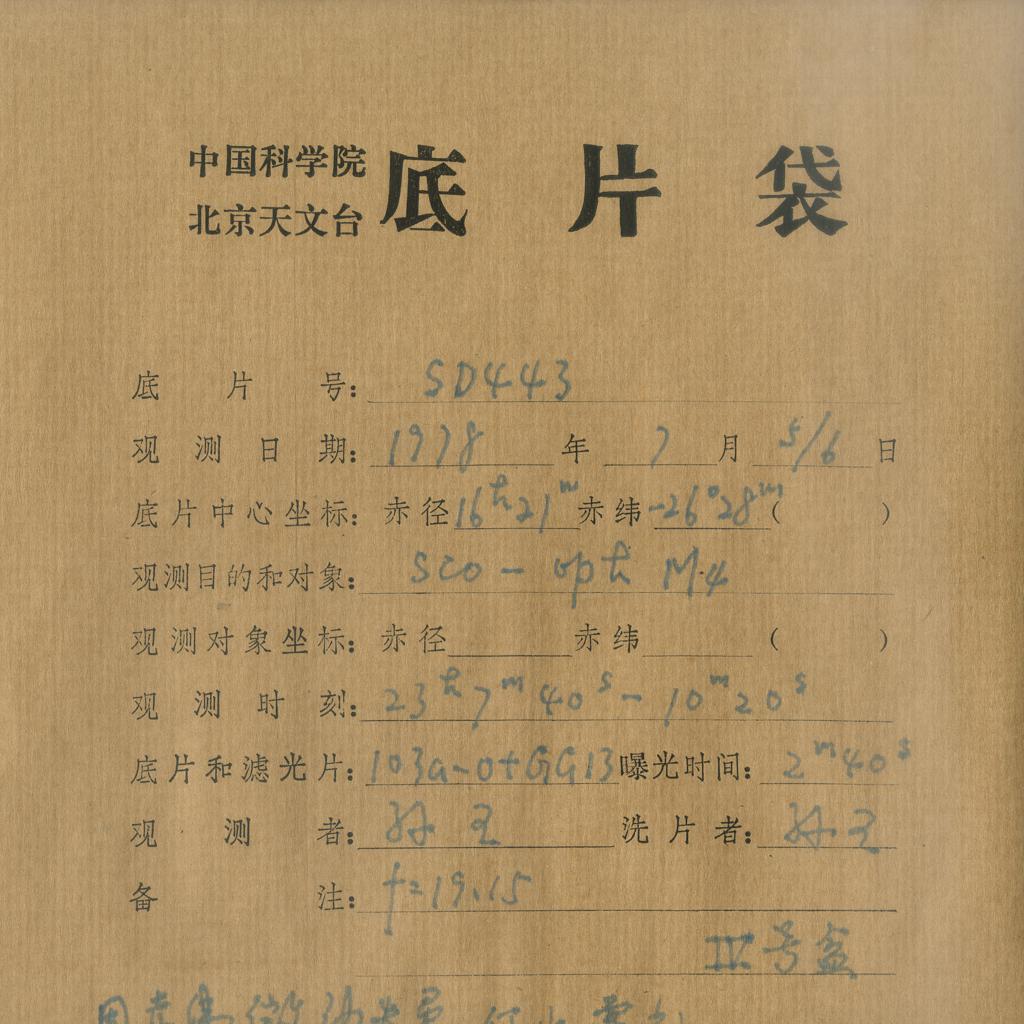 中国科学院
北京天文台
底片袋
底片号: SD443
观测日期: 1978 年 7 月 5/6 日
底片中心坐标: 赤径 16ʰ21ᵐ 赤纬 -26°28ᵐ ( )
观测目的和对象: Sco - opth M4
观测对象坐标: 赤径 赤纬 ( )
观测时刻: 23ʰ7ᵐ40ˢ - 10ᵐ20ˢ
底片和滤光片: 103a-O+GG13 曝光时间: 2ᵐ40ˢ
观测者: 孙 王 洗片者: 孙 王
备注: f=19.15
号盒